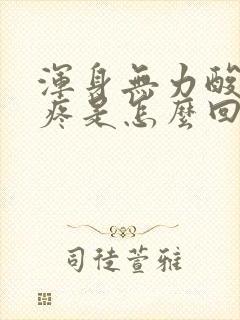 渾身無力酸
疼是怎麼回
司徒萱雅